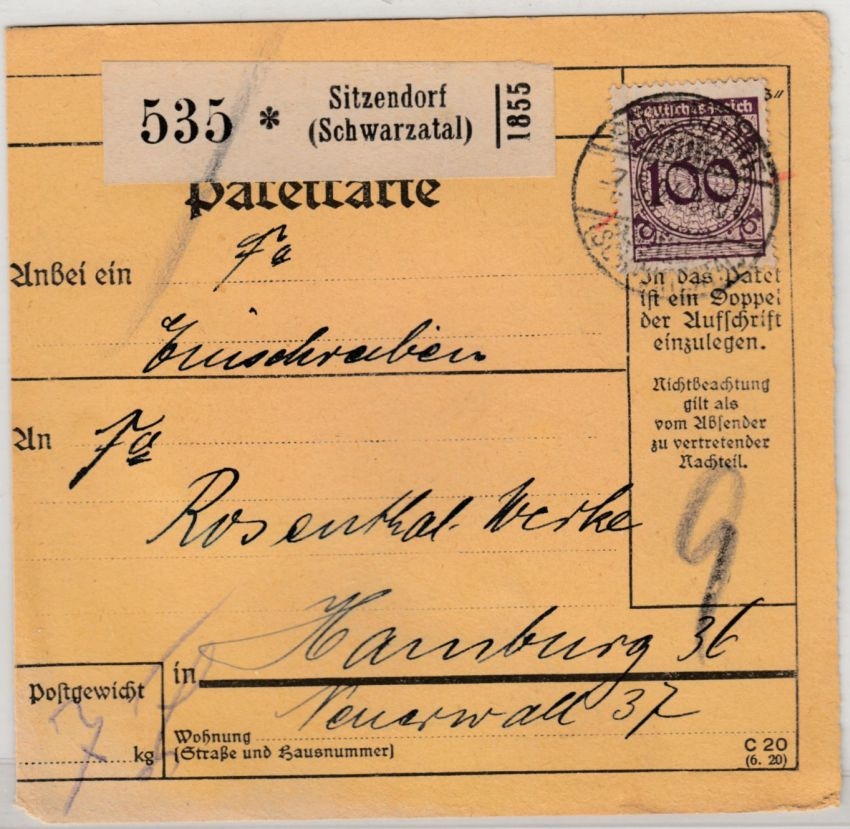 535 * Sitzendorf
(Schwarzatal)
1855
Deutsches Reich
100
Paketkarte
Anbei ein Fa
Einschreiben
In das Paket
ist ein Doppel
der Aufschrift
einzulegen.
Nichtbeachtung
gilt als
vom Absender
zu vertretender
Nachteil.
An Fa
Rosenthal-Werke
9
in Hamburg 36
Neuerwall 37
Postgewicht
7
kg
Wohnung
(Straße und Hausnummer)
C 20
(6. 20)